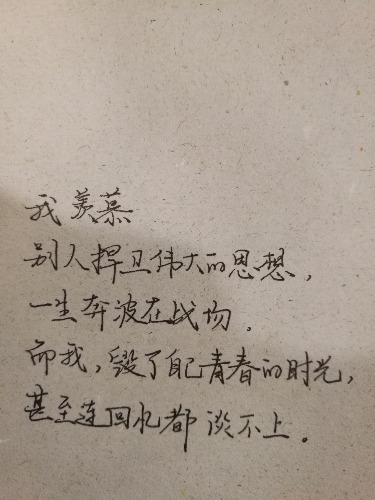 我羡慕
别人捍卫伟大的思想，
一生奔波在战场。
而我，毁了自己青春的时光，
甚至连回忆都谈不上。